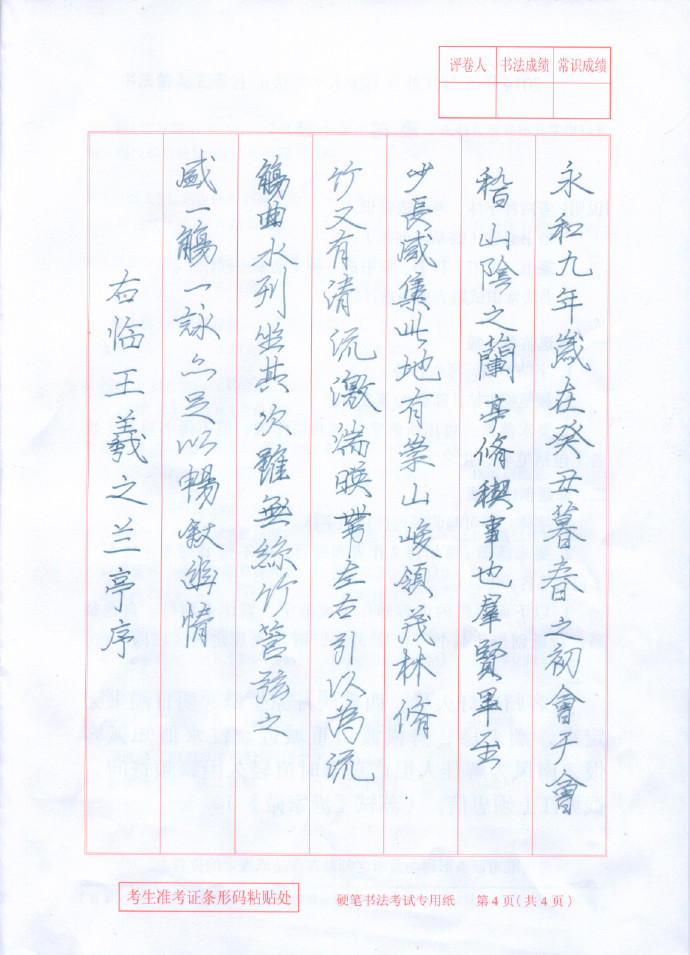 评卷人 书法成绩 常识成绩
永和九年歲在癸丑暮春之初會于會
稽山陰之蘭亭脩稧事也羣賢畢至
少長咸集此地有崇山峻領茂林脩
竹又有清流激湍暎帶左右引以為流
觴曲水列坐其次雖無絲竹管弦之
盛一觴一詠亦足以暢敘幽情
右临王羲之兰亭序
考生准考证条形码粘贴处
硬笔书法考试专用纸 第4页(共4页)